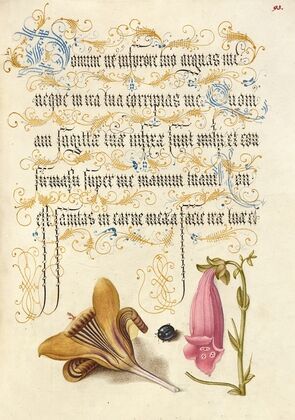 93.
Domine ne in furore tuo arguas me
neque in ira tua corripias me. Quoni
am sagittæ tuæ infixæ sunt mihi et con
firmasti super me manum tuam. Non
est sanitas in carne mea a facie iræ tuæ et